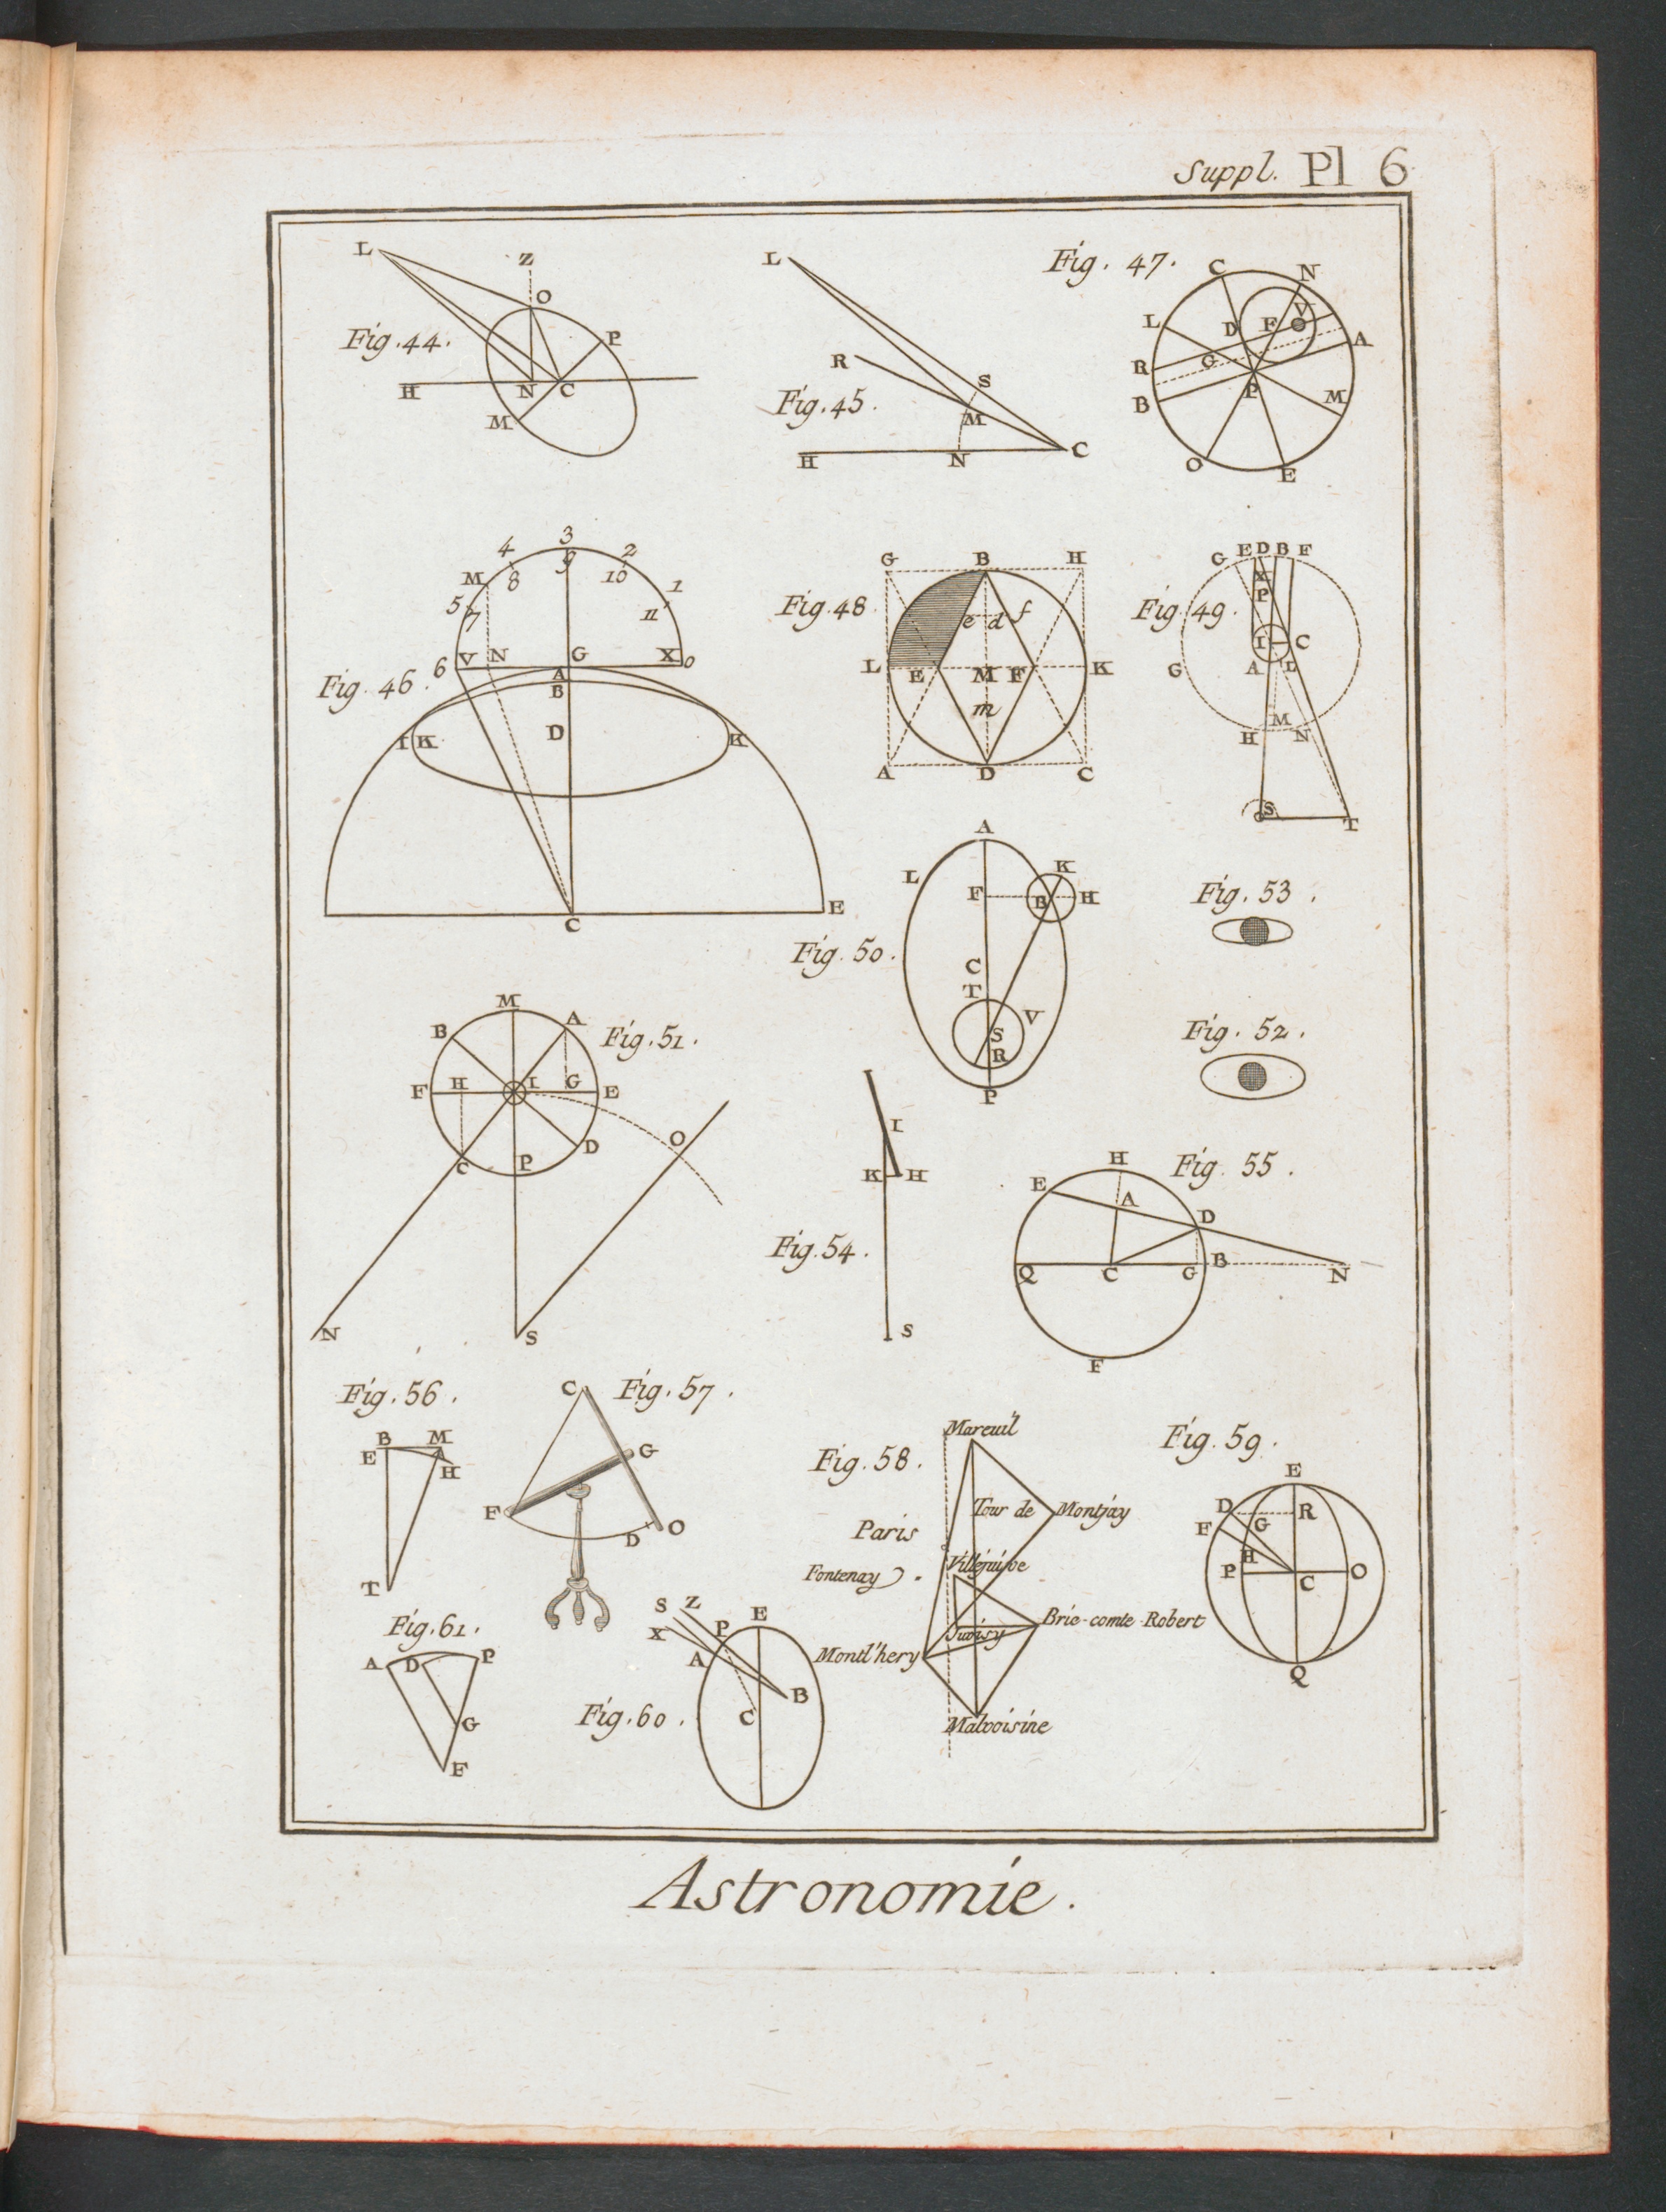 Suppl. Pl 6
L
Z
O
P
Fig. 44.
H
N
C
M
L
R
S
Fig. 45.
M
H
N
C
Fig. 47.
C
N
L
D
F
V
A
R
G
B
P
M
O
E
3
4
9
2
M
8
10
1
5
7
11
6
V
N
G
X
0
Fig. 46.
A
B
I
K
D
K
C
E
G
B
H
Fig. 48.
e
d
f
L
E
M
F
K
m
A
D
C
G
E
D
B
F
X
P
Fig. 49.
I
C
G
A
L
M
H
N
S
T
A
L
K
F
B
H
Fig. 50.
C
T
V
S
R
P
Fig. 53.
Fig. 52.
M
B
A
Fig. 51.
F
H
I
G
E
C
P
D
O
N
S
I
K
H
Fig. 54.
S
H
Fig. 55.
E
A
D
Q
C
G
B
N
F
Fig. 56.
B
M
E
H
T
C
Fig. 57.
G
F
D
O
Mareuil
Fig. 58.
Tour de Montjay
Paris
Villejuive
Fontenay
Juvisy
Brie-comte-Robert
Montl'hery
Malvoisine
Fig. 59.
E
D
R
F
G
H
P
C
O
Q
Fig. 61.
A
D
P
G
F
S
Z
X
P
E
A
B
C
Fig. 60.
Astronomie.